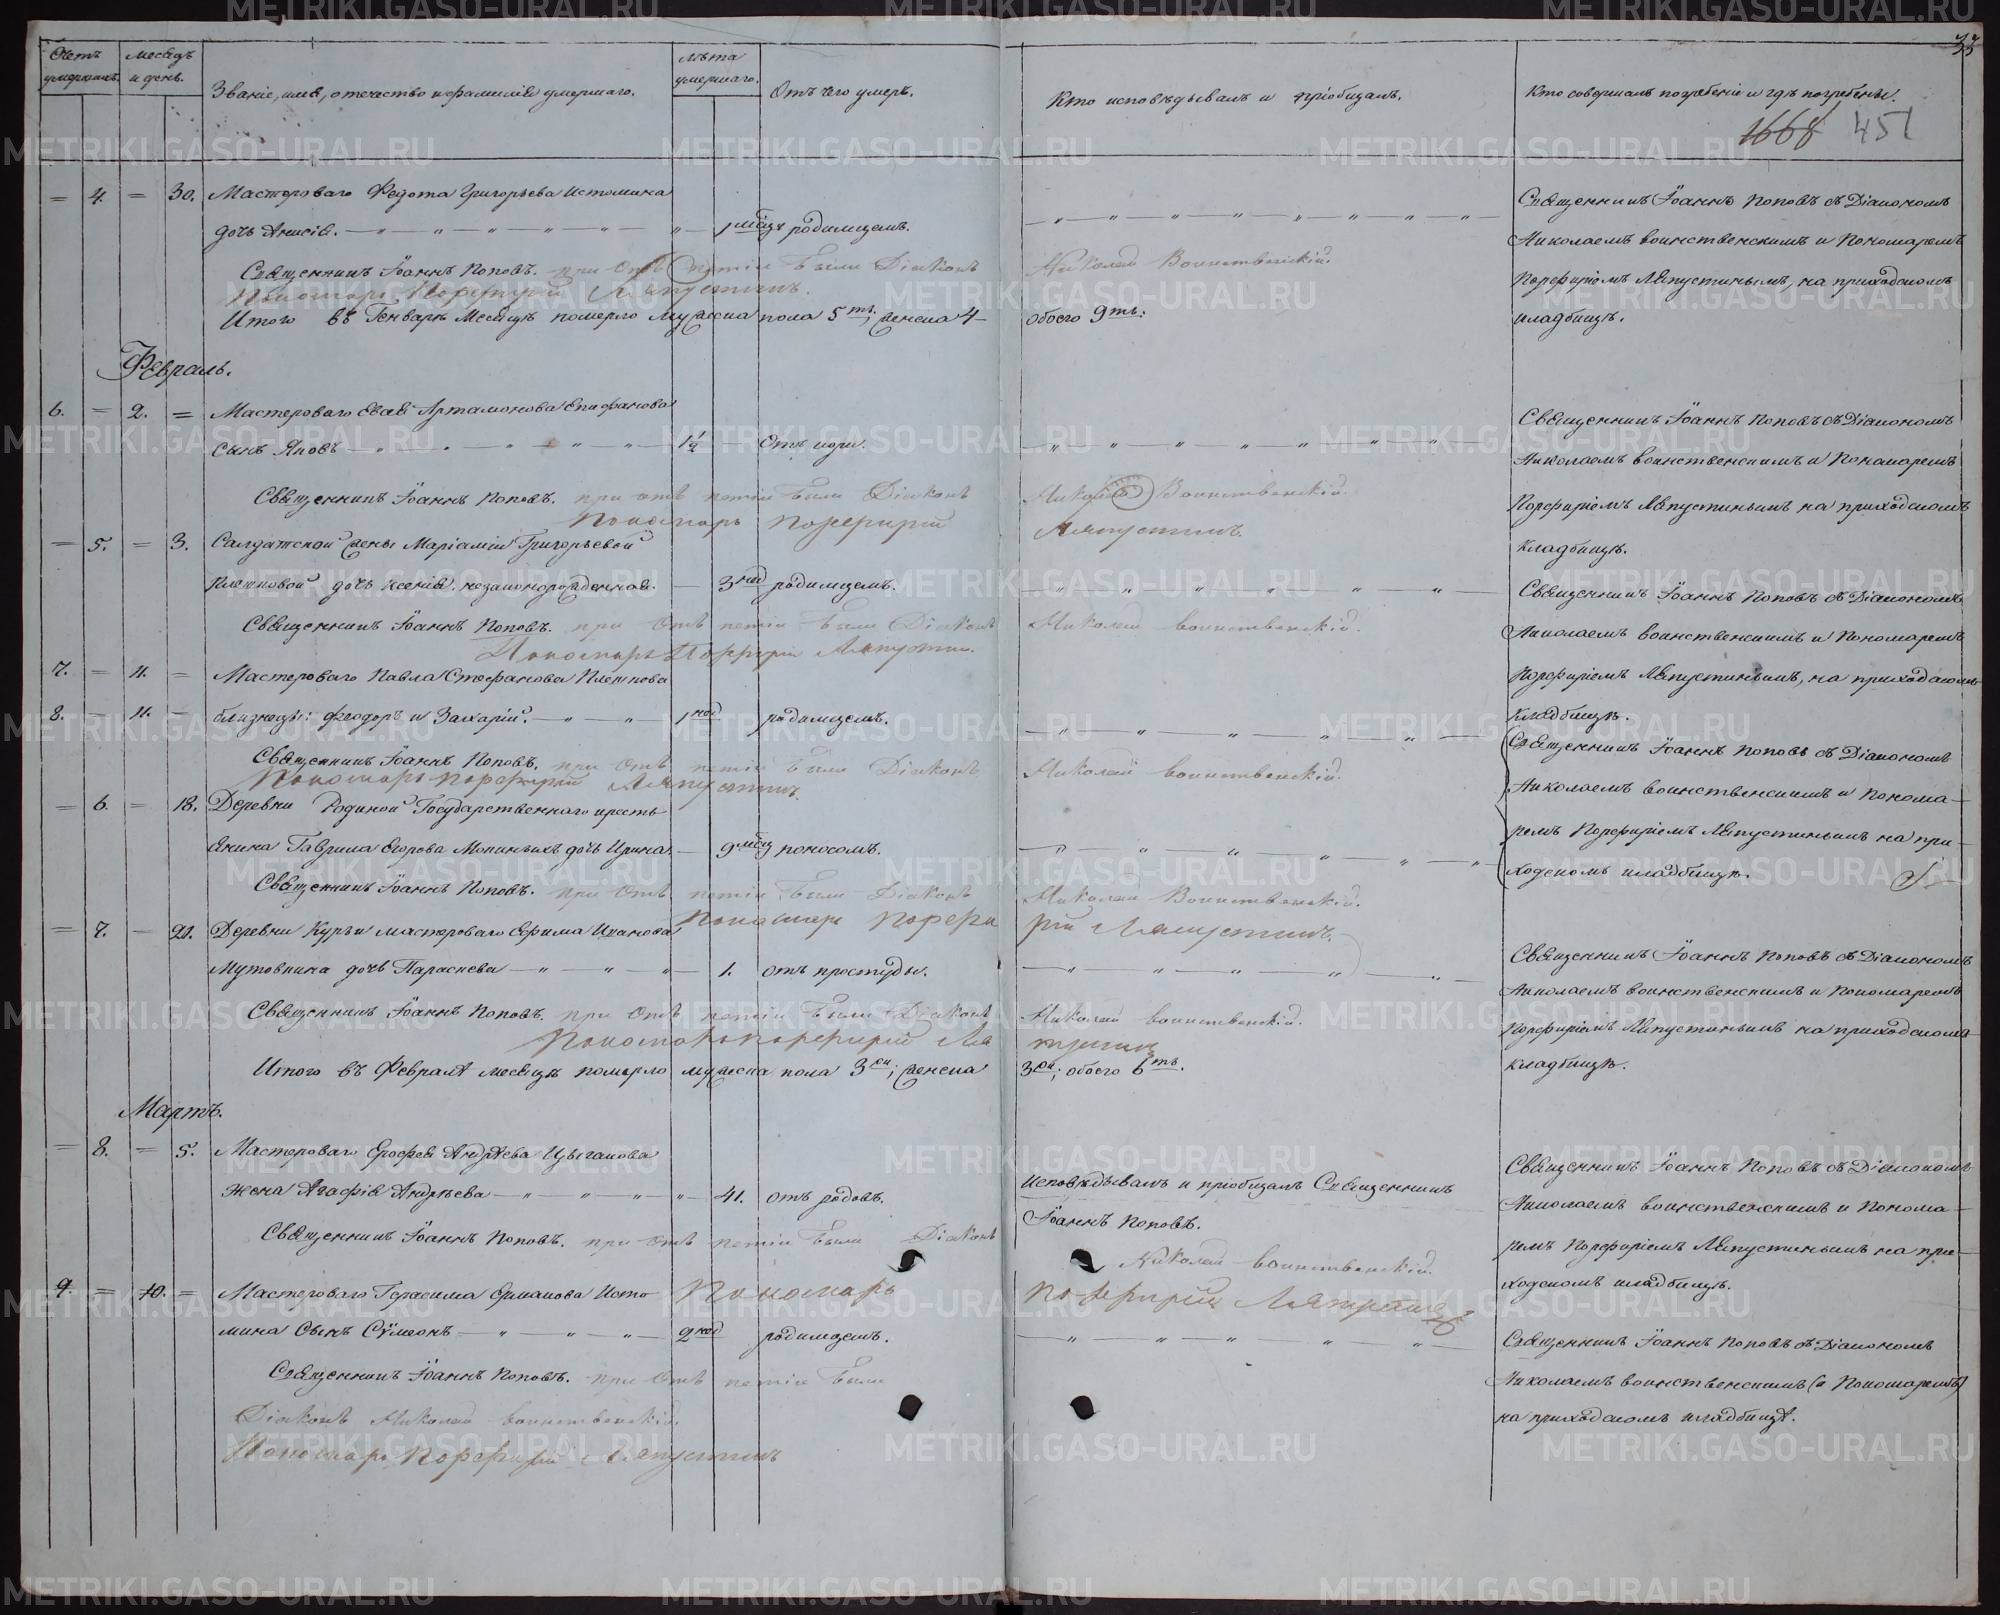 Счетъ умершихъ.
Месяцъ и день.
Званіе, имя, отчество и фамилія умершаго.
Лѣта умершаго.
Отъ чего умеръ.
Кто исповѣдывалъ и пріобщалъ.
Кто совершалъ погребеніе и гдѣ погребены.
33
1668 451
4. 30. Мастероваго Федота Григорьева Истомина
дочь Анисія. 1 мѣсяц родимцемъ.
Священникъ Іоаннъ Поповъ съ Діакономъ
Николаемъ Воинственскимъ и Пономаремъ
Порфиріемъ Ляпустинымъ, на приходскомъ
кладбищѣ.
Священникъ Іоаннъ Поповъ. при отпетіи были Діаконъ Николай Воинственскій.
Пономарь Порфирій Ляпустинъ.
Итого въ Генварѣ месяцѣ померло мужеска пола 5ть, женска 4 обоего 9ть.
Февраль.
6. 2. Мастероваго Саввы Артамонова Епифанова
сынъ Яковъ 1 1/2 Отъ кори.
Священникъ Іоаннъ Поповъ съ Діакономъ
Николаемъ Воинственскимъ и Пономаремъ
Порфиріемъ Ляпустинымъ на приходскомъ
кладбищѣ.
Священникъ Іоаннъ Поповъ. при отпетіи были Діаконъ Николай Воинственскій.
Пономарь Порфирій Ляпустинъ.
5. 3. Салдатской жены Маріамны Григорьевой
Плетновой дочь Ксенія. незаконорожденная. 3 нед родимцемъ.
Священникъ Іоаннъ Поповъ съ Діакономъ
Николаемъ Воинственскимъ и Пономаремъ
Порфиріемъ Ляпустинымъ, на приходскомъ
кладбищѣ.
Священникъ Іоаннъ Поповъ. при отпетіи были Діаконъ Николай Воинственскій.
Пономарь Порфирій Ляпустин.
7. 11. Мастероваго Павла Стефанова Плетнова
8. 11. близнецы: Феодоръ и Захарій. 1 нед родимцемъ.
Священникъ Іоаннъ Поповъ съ Діакономъ
Николаемъ Воинственскимъ и Понома-
ремъ Порфиріемъ Ляпустинымъ на при-
ходскомъ кладбищѣ.
Священникъ Іоаннъ Поповъ. при отпетіи были Діаконъ Николай Воинственскій.
Пономарь Порфирій Ляпустинъ.
6. 18. Деревни Родиной Государственнаго кресть-
янина Гаврила Егорова Мокиныхъ дочь Ирина. 9 мѣсяц поносомъ.
Священникъ Іоаннъ Поповъ. при отпетіи были Діаконъ Николай Воинственскій.
Пономарь Порфирій Ляпустинъ.
7. 21. Деревни Курги мастероваго Ефима Иванова
Мутовкина дочь Параскева 1. отъ простуды.
Священникъ Іоаннъ Поповъ съ Діакономъ
Николаемъ Воинственскимъ и Пономаремъ
Порфиріемъ Ляпустинымъ на приходскомъ
кладбищѣ.
Священникъ Іоаннъ Поповъ. при отпетіи были Діаконъ Николай Воинственскій.
Пономарь Порфирій
Итого въ Февралѣ месяцѣ померло мужеска пола 3 ри; женска 3 ри; обоего 6 ть.
Мартъ.
8. 5. Мастероваго Ерофея Андрѣева Цыганова
жена Агафія Андрѣева 41. отъ родовъ.
Исповѣдывалъ и пріобщалъ Священникъ
Іоаннъ Поповъ.
Священникъ Іоаннъ Поповъ съ Діакономъ
Николаемъ Воинственскимъ и Понома-
ремъ Порфиріемъ Ляпустинымъ на при-
ходскомъ кладбищѣ.
Священникъ Іоаннъ Поповъ. при отпетіи были Діаконъ Николай Воинственскій.
Пономарь Порфирій Ляпустинъ
9. 10. Мастероваго Герасима Ермакова Исто-
мина сынъ Сѵмеонъ 2 нед родимцемъ.
Священникъ Іоаннъ Поповъ съ Діакономъ
Николаемъ Воинственскимъ (и Пономаремъ)
на приходскомъ кладбищѣ.
Священникъ Іоаннъ Поповъ. при отпетіи были
Діаконъ Николай Воинственскій.
Пономарь Порфирій Ляпустинъ
METRIKI.GASO-URAL.RU